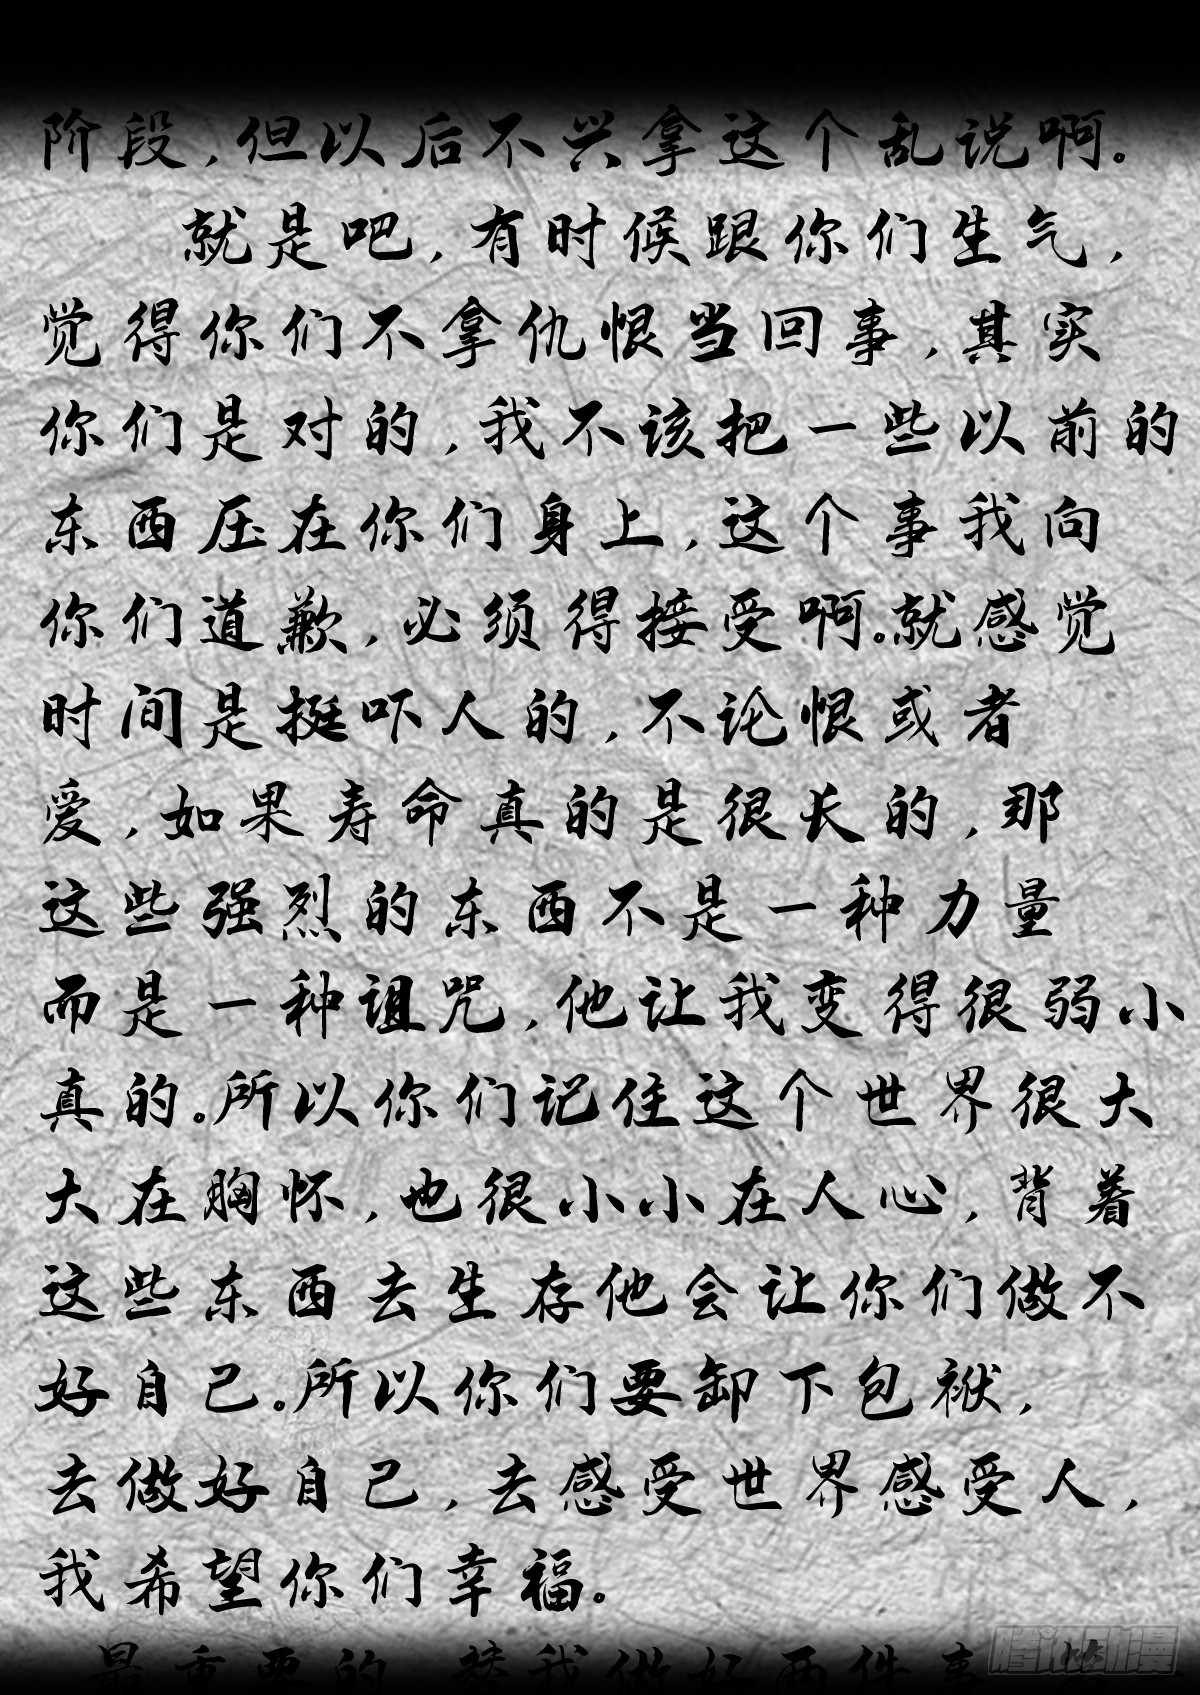 阶段，但以后不兴拿这个乱说啊。
就是吧，有时候跟你们生气，
觉得你们不拿仇恨当回事，其实
你们是对的，我不该把一些以前的
东西压在你们身上，这个事我向
你们道歉，必须得接受啊。就感觉
时间是挺吓人的，不论恨或者
爱，如果寿命真的是很长的，那
这些强烈的东西不是一种力量
而是一种诅咒，他让我变得很弱小
真的。所以你们记住这个世界很大
大在胸怀，也很小小在人心，背着
这些东西去生存他会让你们做不
好自己。所以你们要卸下包袱，
去做好自己，去感受世界感受人，
我希望你们幸福。
最重要的，替我做好两件事，第
腾讯动漫